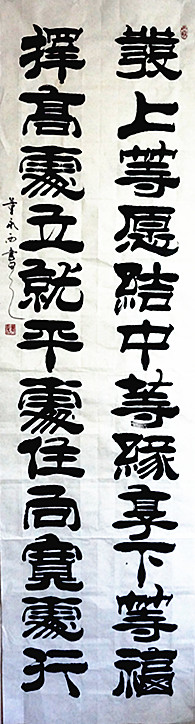 發上等愿結中等緣享下等福
擇高處立就平處住向寬處行